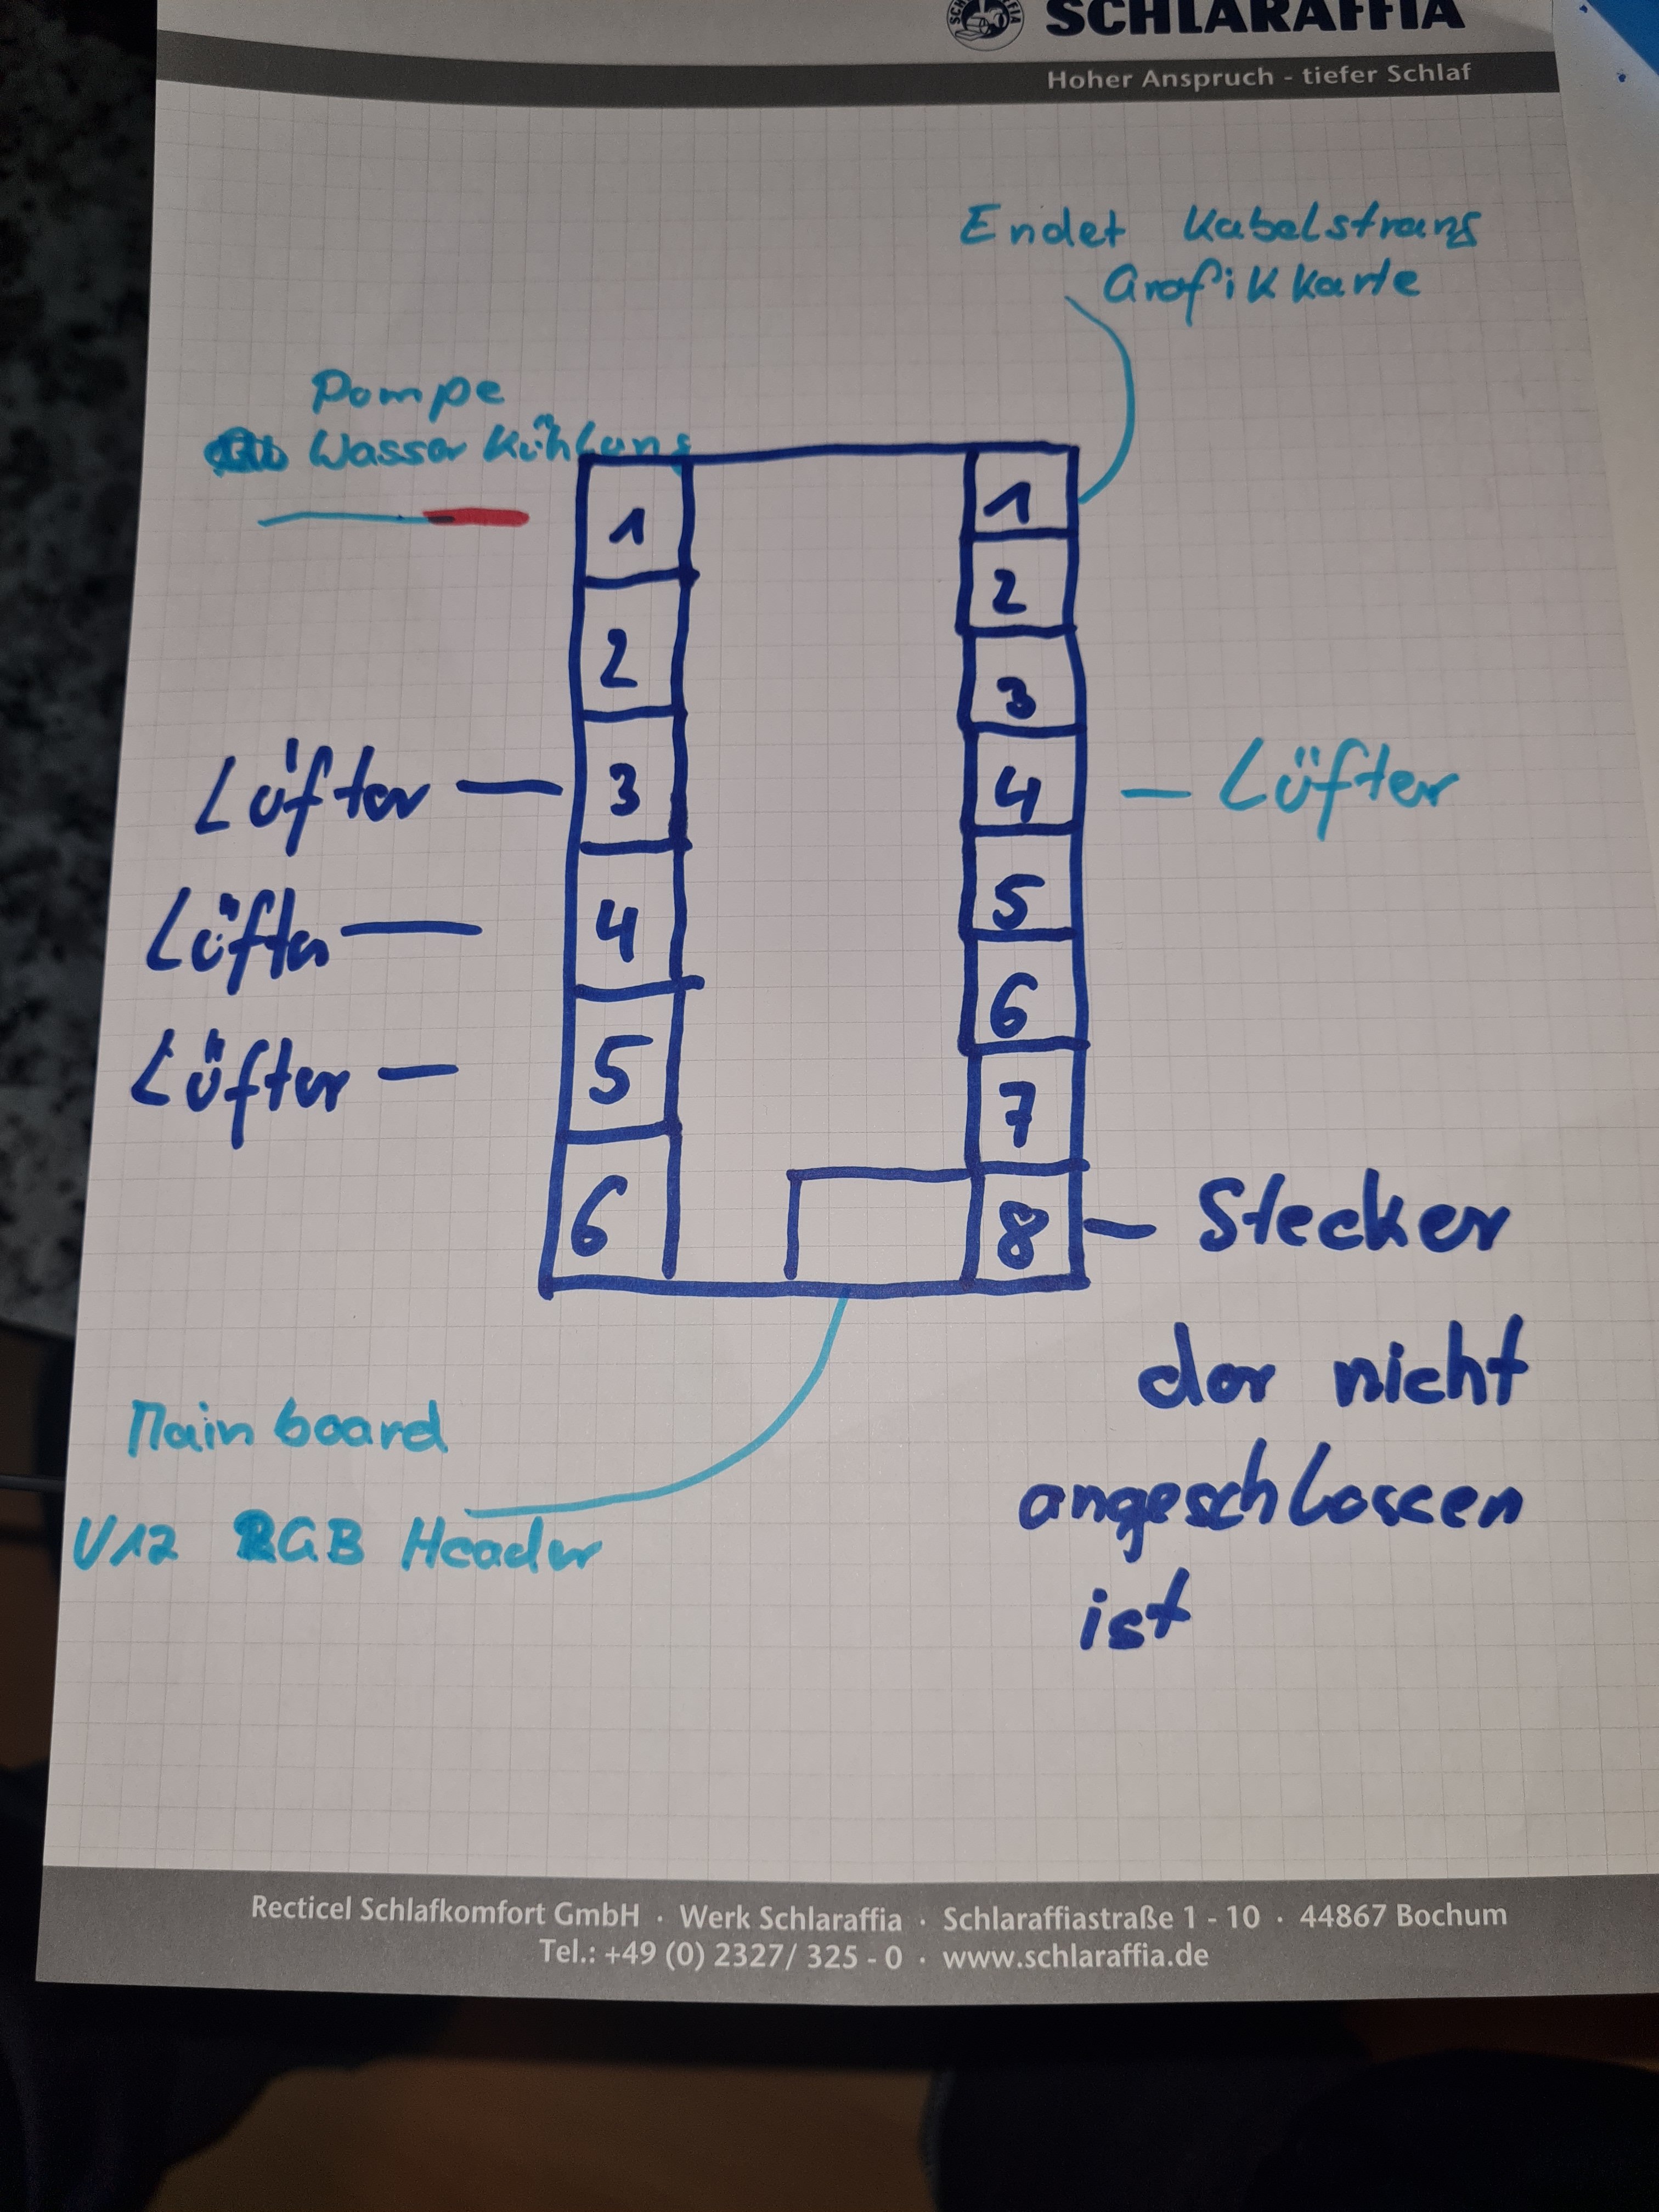 SCHLARAFFIA
Hoher Anspruch - tiefer Schlaf
Endet Kabelstrang
Grafikkarte
Pompe
Wasser Kühlung
1
2
3
4
5
6
1
2
3
4
5
6
7
8
Lüfter —
Lüfter —
Lüfter —
— Lüfter
— Stecker
der nicht
angeschlossen
ist
Mainboard
V12 RGB Header
Recticel Schlafkomfort GmbH · Werk Schlaraffia · Schlaraffiastraße 1 - 10 · 44867 Bochum
Tel.: +49 (0) 2327/ 325 - 0 · www.schlaraffia.de